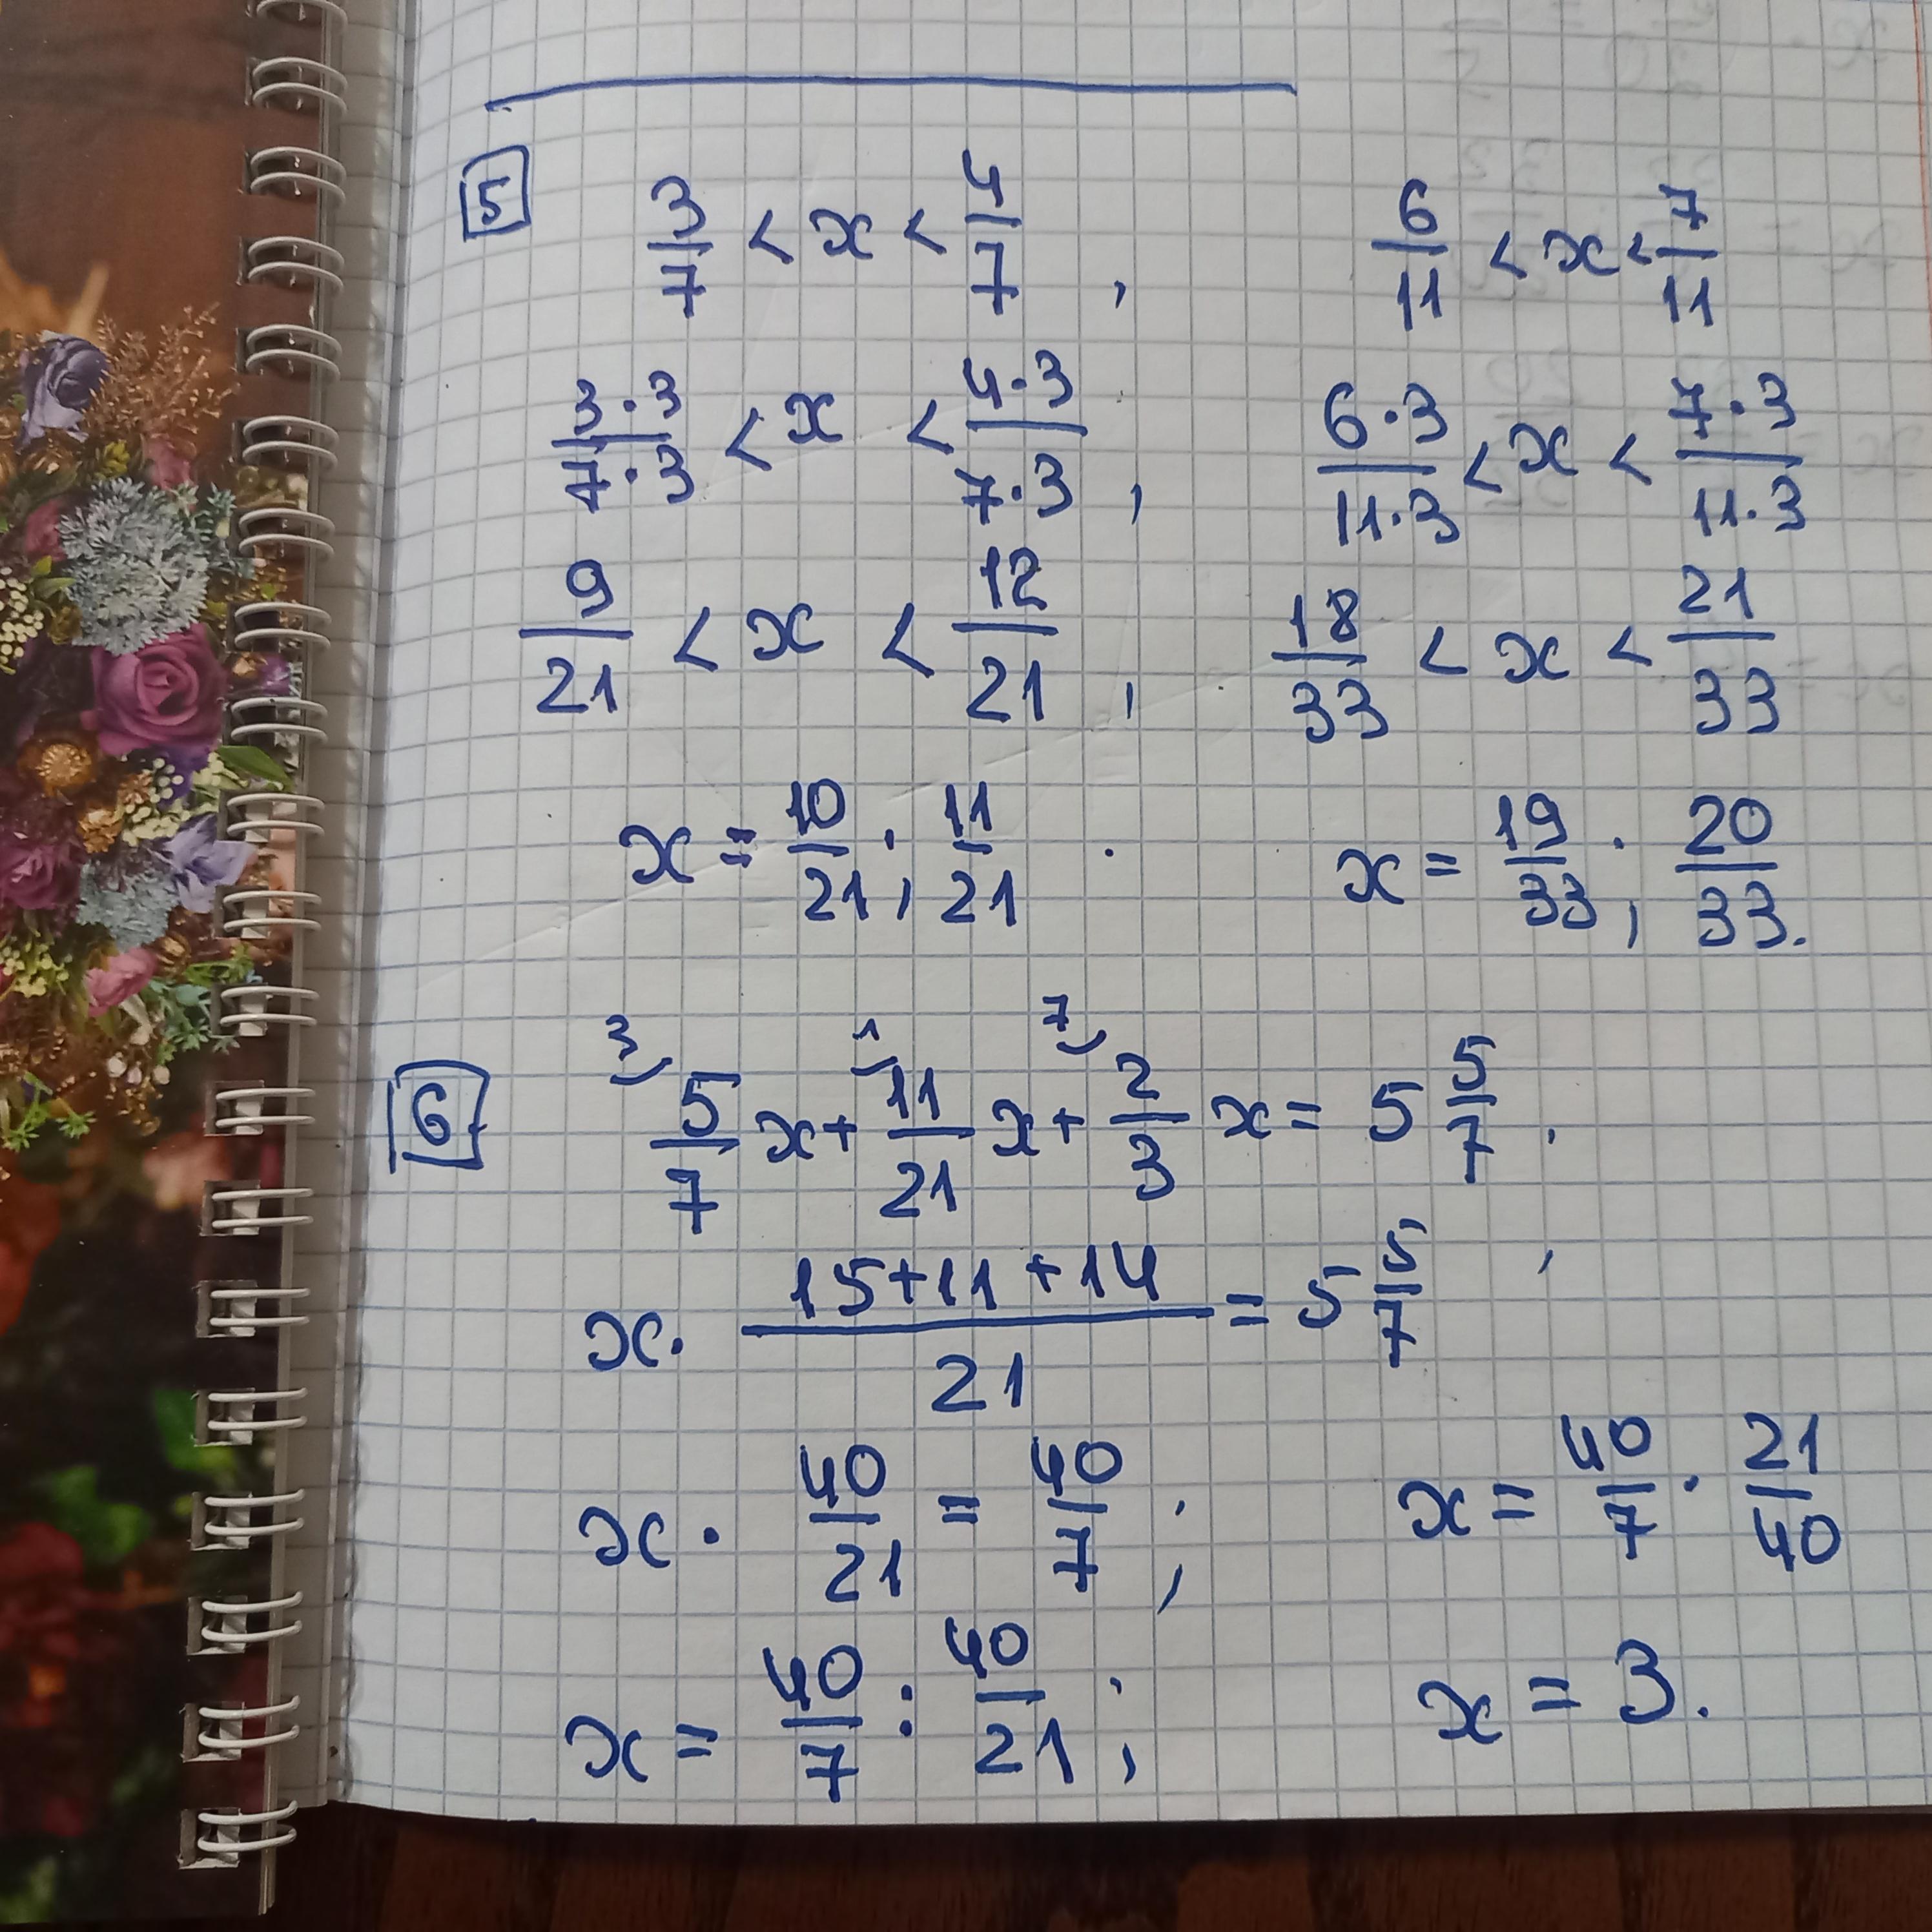 5 3/7 < x < 4/7 , 6/11 < x < 7/11
3·3/7·3 < x < 4·3/7·3 , 6·3/11·3 < x < 7·3/11·3
9/21 < x < 12/21 , 18/33 < x < 21/33
x = 10/21 ; 11/21 . x = 19/33 ; 20/33 .
6 3) 5/7 x + 1) 11/21 x + 7) 2/3 x = 5 5/7 ;
x · 15+11+14/21 = 5 5/7
x · 40/21 = 40/7 ; x = 40/7 · 21/40
x = 40/7 : 40/21 ; x = 3.